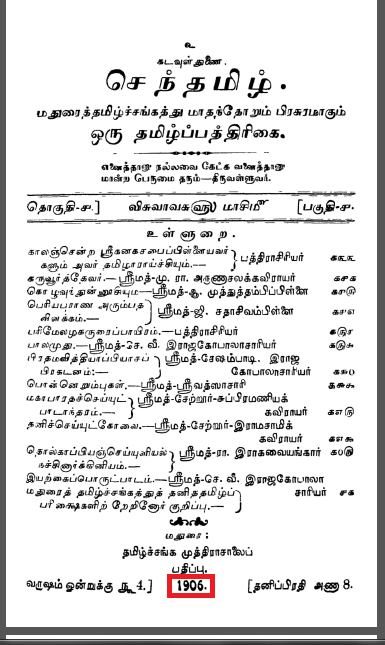 உ
கடவுள் துணை.
செந்தமிழ்.
மதுரைத்தமிழ்ச்சங்கத்து மாதந்தோறும் பிரசுரமாகும்
ஒரு தமிழ்ப்பத்திரிகை.
எனைத்தானு நல்லவை கேட்க வனைத்தானு
மான்ற பெருமை தரும்—திருவள்ளுவர்.
தொகுதி-௪.] விசுவாவசு௵ மாசி௴ [பகுதி-௪.
உள்ளுறை.
காலஞ்சென்ற ஸ்ரீகனகசபைப்பிள்ளையவர்
களும் அவர் தமிழாராய்ச்சியும்.— பத்திராசிரியர்
கருவூர்த்தேவர்.—ஸ்ரீமத்-மு. ரா. அருணாசலக்கவிராயர்
ஸ்ரீமத்-சூ. முத்துத்தம்பிப்பிள்ளை
பெரியபுராண அரும்பத
விளக்கம்.— ஸ்ரீமத்-ஜி. சதாசிவம்பிள்ளை
பரிமேலழகருரைப்பாயிரம்.—பத்திராசிரியர்
பாலமுது.—ஸ்ரீமத்-செ. வி. இராஜகோபாலாசாரியர்
ஸ்ரீமத்-சேஷம்பாடி. இராஜ
பிரகடனம்:— கோபாலாசாரியர்
பொன்னெறும்புகள்.—ஸ்ரீமத்-ஸ்ரீவத்ஸாசாரி
மகாபாரதச்செய்யுட்
பாடாந்தரம்.— ஸ்ரீமத்-சேற்றூர்-சுப்பிரமணியக்
கவிராயர்
தனிச்செய்யுட்கோவை.—ஸ்ரீமத்-சேற்றூர்-இராமசாமிக்
கவிராயர்
தொல்காப்பியச்செய்யுளியல்
நச்சினார்க்கினியம்.— ஸ்ரீமத்-ரா. இராகவையங்கார்
இயற்கைப்பொருட்பாடம்.—ஸ்ரீமத்-செ. வீ. இராஜகோபாலா
சாரியர்
மதுரைத் தமிழ்ச்சங்கத்துத் தனித்தமிழ்ப்
பரீக்ஷைகளிற் றேறினோர் குறிப்பு.—
மதுரை:
தமிழ்ச்சங்க முத்திராசாலைப்
பதிப்பு.
வருஷம் ஒன்றுக்கு ரூ 4.] 1906. [தனிப்பிரதி அணா 8.